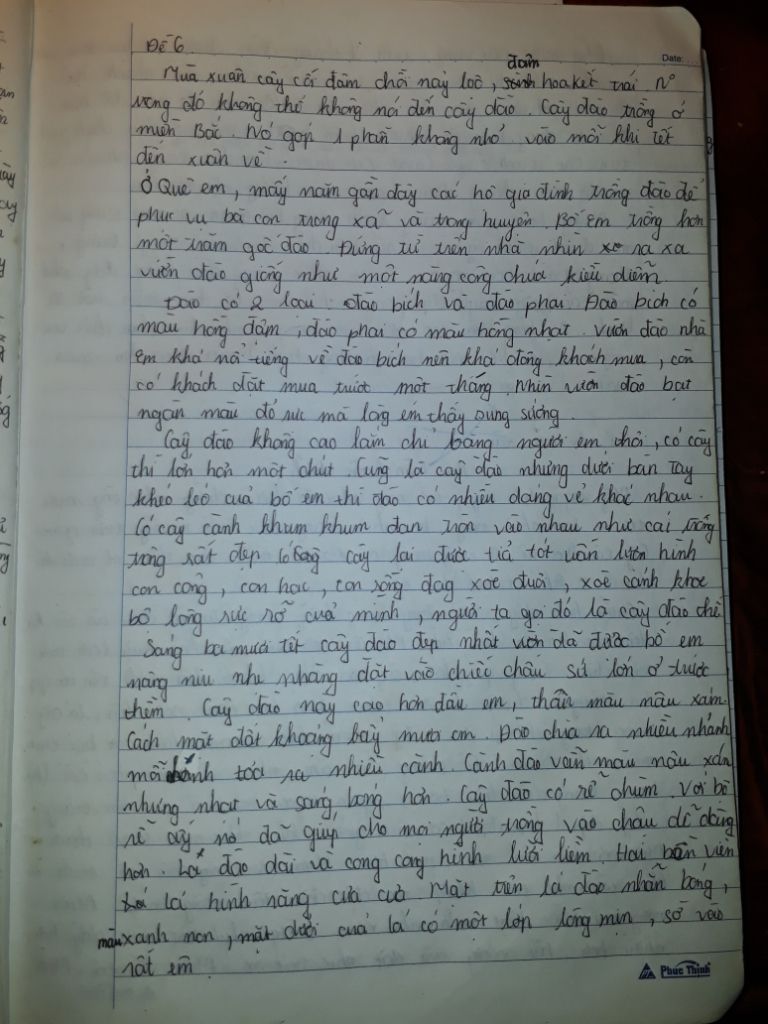 Đề 6.
Date:
Mùa xuân cây cối đâm chồi nảy lộc, đơm hoa kết trái. N°
trong đó không thể không nói đến cây đào. Cây đào trồng ở
miền Bắc. Nó góp 1 phần không nhỏ vào mỗi khi tết
đến xuân về.
Ở Quê em, mấy năm gần đây các hộ gia đình trồng đào để
phục vụ bà con trong xã và trong huyện. Bố em trồng hơn
một trăm gốc đào. Đứng từ trên nhà nhìn ra xa
vườn đào giống như một nàng công chúa kiều diễm.
Đào có 2 loại: đào bích và đào phai. Đào bích có
màu hồng đậm, đào phai có màu hồng nhạt. Vườn đào nhà
em khá nổi tiếng về đào bích nên khá đông khách mua, còn
có khách đặt mua trước một tháng. Nhìn vườn đào bạt
ngàn màu đỏ rực mà lòng em thấy sung sướng.
Cây đào không cao lắm chỉ bằng người em thôi, có cây
thì lớn hơn một chút. Cũng là cây đào nhưng dưới bàn tay
khéo léo của bố em thì đào có nhiều dáng vẻ khác nhau.
Có cây cành khum khum đan tròn vào nhau như cái
trông rất đẹp. cây lại được tỉa tót uấn lượn hình
con công, con hạc, con rồng đag xoè đuôi, xoè cánh khoe
bộ lông rực rỡ của mình, người ta gọi đó là cây đào thế
Sáng ba mươi tết cây đào đẹp nhất vườn đã được bố em
nâng niu nhẹ nhàng đặt vào chiếc chậu sứ lớn ở trước
thềm. Cây đào này cao hơn đầu em, thân màu nâu xám.
Cách mặt đất khoảng bảy mươi cm. Đào chìa ra nhiều nhánh
mỗi nhánh toả ra nhiều cành. Cành đào vẫn màu nâu xám
nhưng nhạt và sáng bóng hơn. Cây đào có rễ chùm. Với bộ
rễ ấy nó đã giúp cho mọi người trồng vào chậu dễ dàng
hơn. Lá đào dài và cong cong hình lưỡi liềm. Hai bên viền
lá hình răng cưa cưa. Mặt trên lá đào nhẵn bóng,
màu xanh non, mặt dưới của lá có một lớp lông mịn, sờ vào
rất êm.
Phúc Thịnh